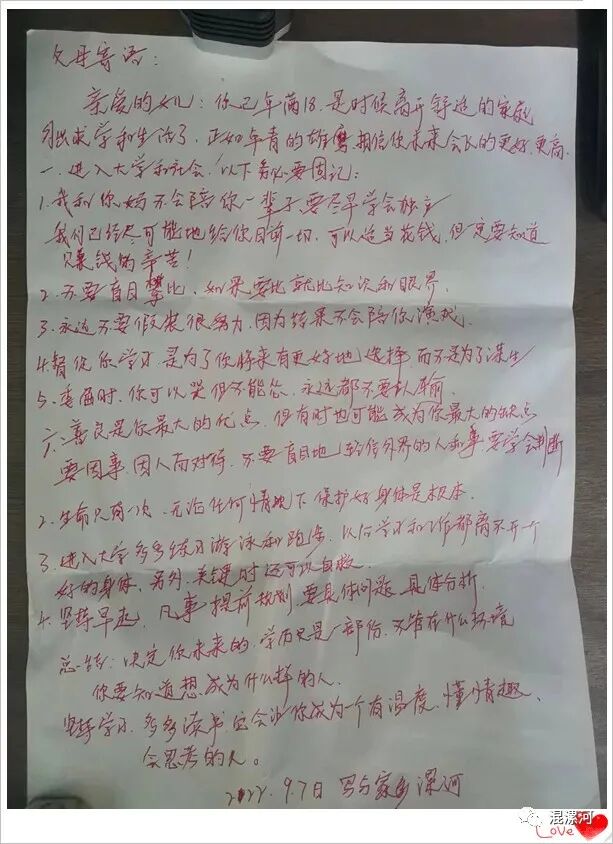 父母寄语：
亲爱的女儿：你已年满18，是时候离开舒适的家庭
外出求学和生活了，正如年青的雄鹰相信你未来会飞的更好更高.
一、进入大学和社会，以下务必要固记：
1.我和你妈不会陪你一辈子要尽早学会独立
我们已经尽可能地给你目前一切，可以适当花钱，但一定要知道
赚钱的辛苦！
2.不要盲目攀比，如果要比就比知识和眼界.
3.永远不要假装很努力，因为结果不会陪你演戏.
4.督促你学习是为了你将来有更好地选择，而不是为了谋生
5.委曲时，你可以哭但不能怂，永远都不要认输.
六、善良是你最大的优点，但有时也可能成为你最大的缺点
要因事、因人而对待，不要盲目地轻信外界的人和事要学会判断
2.生命只有一次，无论任何情况下保护好身体是根本.
3.进入大学多多练习游泳和跑步，以后学习和工作都离不开一个
好的身体，另外，关键时还可以自救
4.坚持早起，凡事提前规划，要具体问题具体分析.
总结：决定你未来的，学历只是一部份，不管在什么环境
你要知道想成为什么样的人.
坚持学习，多多读书，它会让你成为一个有温度、懂情趣、
会思考的人。
2022.9.7日 写与家乡漯河
混漯河
Love